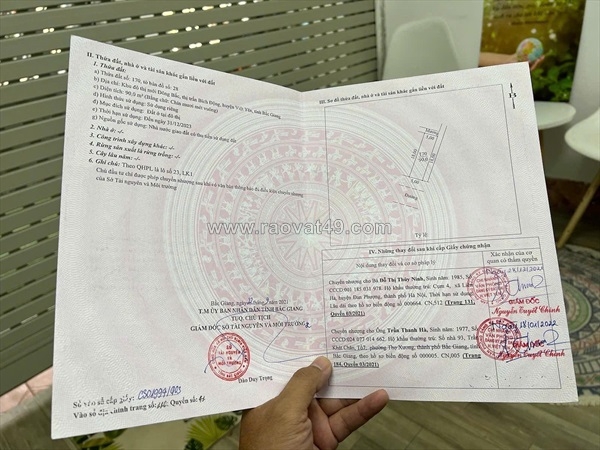 II. Thửa đất, nhà ở và tài sản khác gắn liền với đất
1. Thửa đất:
a) Thửa đất số: 170, tờ bản đồ số: 28
b) Địa chỉ: Khu đô thị mới Đông Bắc, thị trấn Bích Động, huyện Việt Yên, tỉnh Bắc Giang
c) Diện tích: 90,0 m² (Bằng chữ: Chín mươi mét vuông)
d) Hình thức sử dụng: Sử dụng riêng
đ) Mục đích sử dụng: Đất ở tại đô thị
e) Thời hạn sử dụng: Đến ngày 31/12/2023
g) Nguồn gốc sử dụng: Nhà nước giao đất có thu tiền sử dụng đất
2. Nhà ở: -/-
3. Công trình xây dựng khác: -/-
4. Rừng sản xuất là rừng trồng: -/-
5. Cây lâu năm: -/-
6. Ghi chú: Theo QHPL là lô số 23, LK1.
Chủ đầu tư chỉ được chuyển nhượng sau khi có văn bản thông báo đủ điều kiện chuyển nhượng
của Sở Tài nguyên và Môi trường
Bắc Giang, ngày
T.M ỦY BAN NHÂN DÂN TỈNH BẮC GIANG
TUQ. CHỦ TỊCH
GIÁM ĐỐC SỞ TÀI NGUYÊN VÀ MÔI TRƯỜNG
SỞ
TÀI NGUYÊN
VÀ
MÔI TRƯỜNG
Đào Duy Trọng
Số vào sổ cấp giấy:
Vào sổ địa chính trang số: Quyển số:
III. Sơ đồ thửa đất, nhà ở và tài sản khác gắn liền với đất
Mương
90,0
Đường
Tỷ lệ
IV. Những thay đổi sau khi cấp Giấy chứng nhận
Nội dung thay đổi và cơ sở pháp lý
Xác nhận của cơ
quan có thẩm quyền
Chuyển nhượng cho Bà Đỗ Thị Thúy Ninh, Sinh năm: 1985,
CCCD:001 185 031 978. Hộ khẩu thường trú: Cụm 4, xã Liên
Hà, huyện Đan Phượng, thành phố Hà Nội, Thời hạn sử dụng:
Lâu dài theo hồ sơ biến động số 000664. CN.512 (Trang 131,
Quyển 05/2021)
GIÁM ĐỐC
Nguyễn Tuyết Chinh
Chuyển nhượng cho Ông Trần Thanh Hà, Sinh năm: 1977,
CCCD:024 073 014 662. Hộ khẩu thường trú: Số nhà 93,
phường Thọ Xương, thành phố Bắc Giang,
Bắc Giang, theo hồ sơ biến động số 000005, CN.005 (Trang
186, Quyển 03/2021)
18/01/2022
GIÁM ĐỐC
Nguyễn Tuyết Chinh
www.raovat49.com